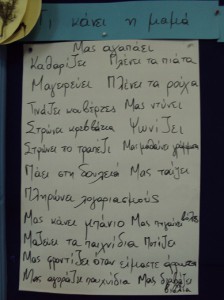 Τι κάνει η μαμά
Μας αγαπάει
Καθαρίζει Πλένει τα πιάτα
Μαγειρεύει Πλένει τα ρούχα
Τινάζει κουβέρτες Μας ντύνει
Στρώνει κρεββάτια Ψωνίζει
Στρώνει το τραπέζι Μας μαθαίνει γράμματα
Πάει στη δουλειά Μας ταΐζει
Πληρώνει λογαριασμούς
Μας κάνει μπάνιο Μας πηγαίνει βόλτες
Μαζεύει τα παιχνίδια Ποτίζει
Μας φροντίζει όταν είμαστε άρρωστοι
Μας αγοράζει παιχνίδια Μας διαβάζει βιβλία